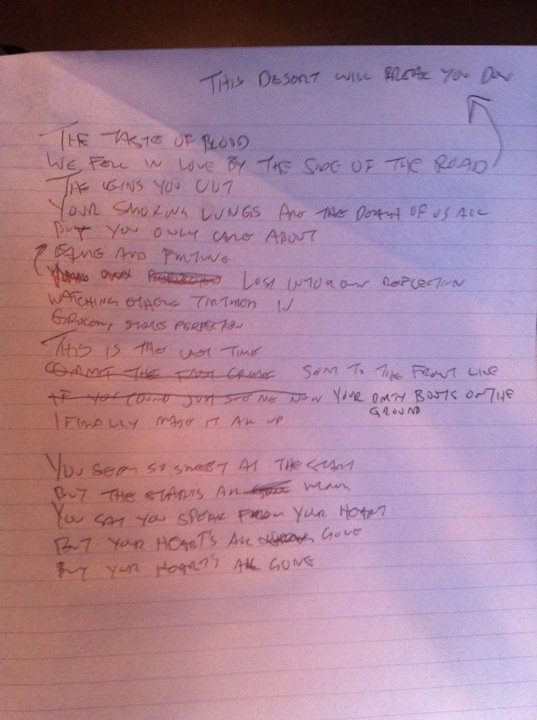 THIS DESERT WILL BREAK YOU DOW
THE TASTE OF BLOOD
WE FELL IN LOVE BY THE SIDE OF THE ROAD
THE VEINS YOU CUT
YOUR SMOKING LUNGS ARE THE DEATH OF US ALL
BUT YOU ONLY CARE ABOUT
FAME AND FORTUNE
LOST IN YOUR OWN REFLECTION
WATCHING IN
GROCERY STORE PERFECTION
THIS IS THE LAST TIME
COMMIT THE LAST CRIME SENT TO THE FRONT LINE
IF YOU COULD JUST SEE ME NOW YOUR DIRTY BOOTS ON THE
GROUND
I FINALLY MADE IT ALL UP
YOU SEEM SO SWEET AT THE START
BUT THE START'S ALL
YOU SAY YOU SPEAK FROM YOUR HEART
BUT YOUR HEART'S ALL GONE
BUT YOUR HEART'S ALL GONE